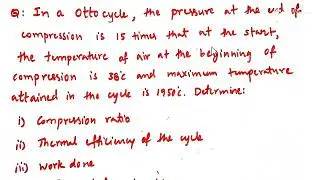 Q: In a Otto cycle, the pressure at the end of
compression is 15 times that at the start,
the temperature of air at the beginning of
compression is 38°c and maximum temperature
attained in the cycle is 1950°c. Determine:
i) Compression ratio
ii) Thermal efficiency of the cycle
iii) work done